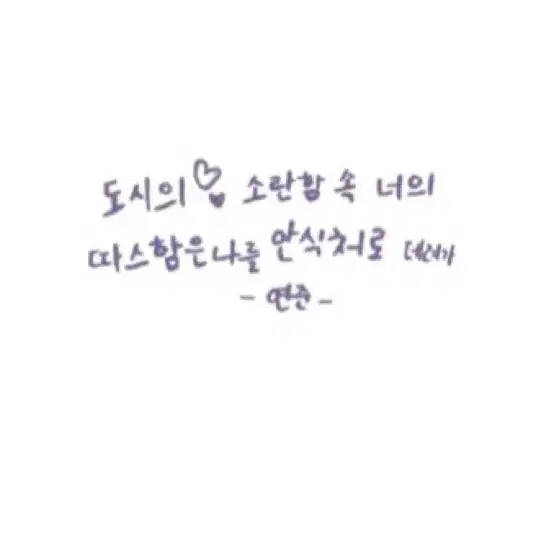 도시의 ♡♥ 소란함 속 너의
따스함은 나를 안식처로 데려가
- 연준 -